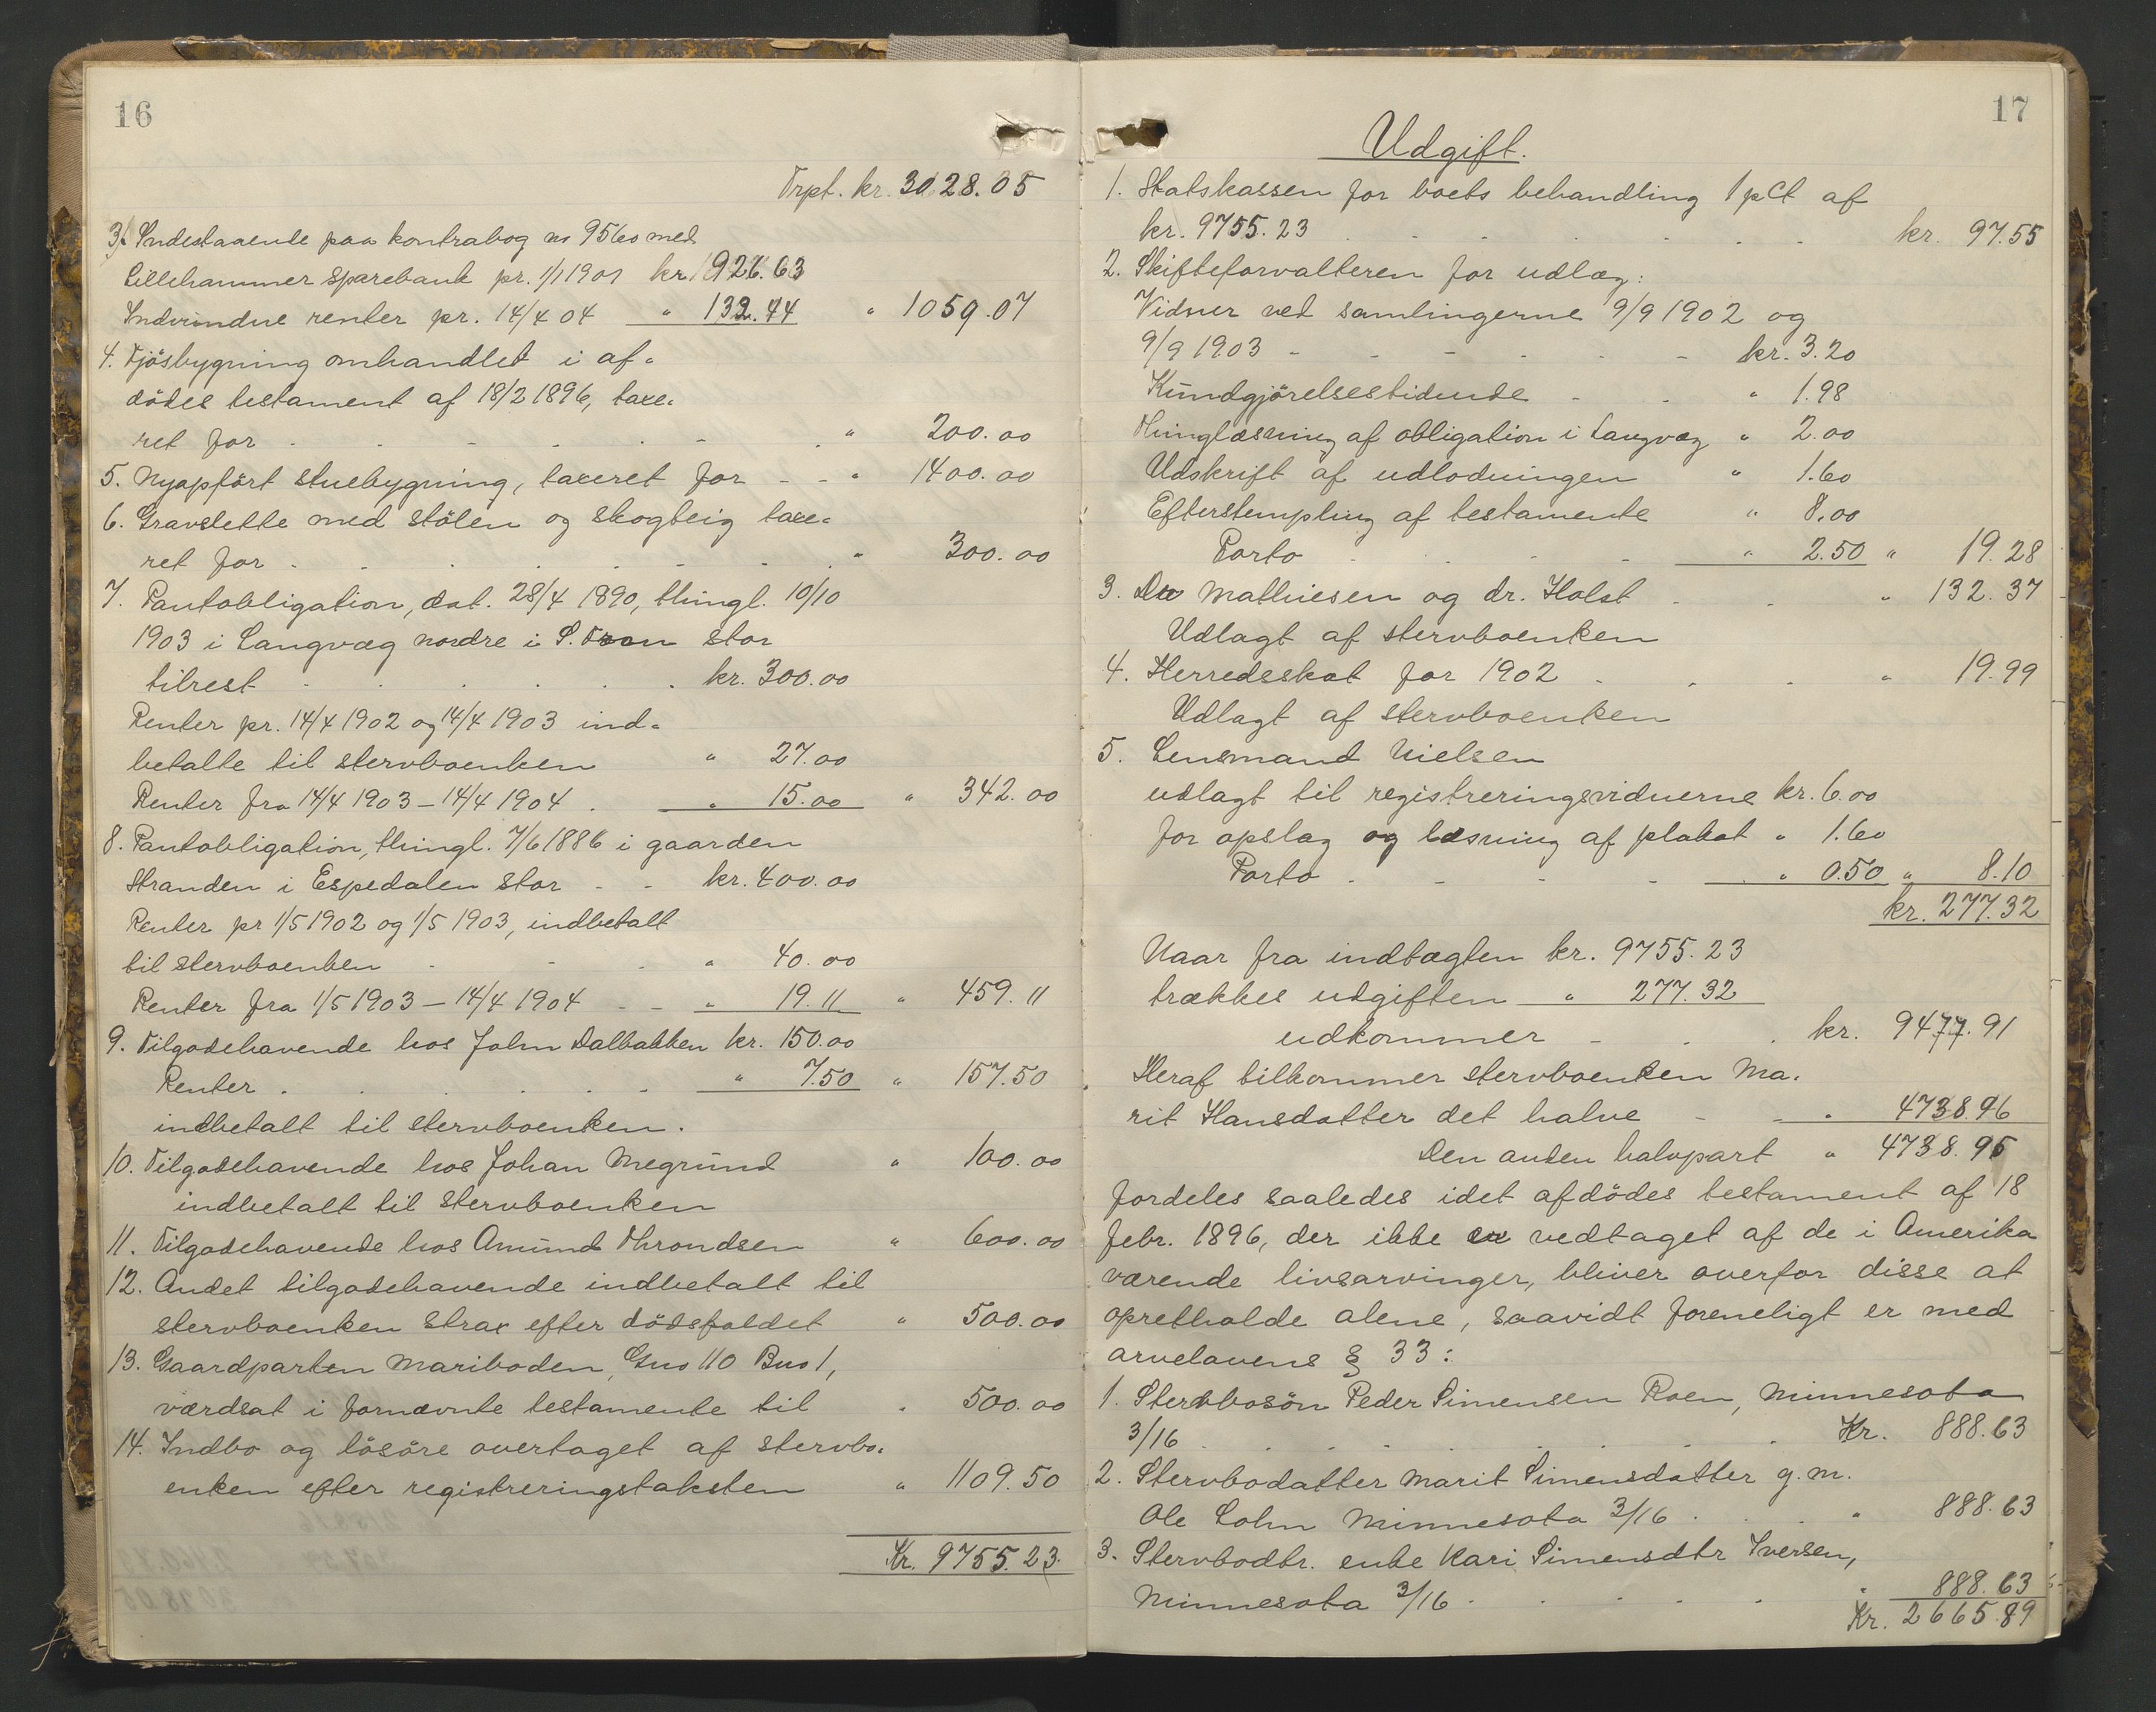 16
Trpt. kr. 3028.05
3. Indestaaende paa kontrabog no 9560 med
Lillehammer sparebank pr. 1/1 1901 kr. 926.63
Indvundne renter pr. 14/4 04 " 132.44 " 1059.07
4. Fjösbygning omhandlet i af-
dödes testament af 18/2 1896, taxe-
ret for " 200.00
5. Nyopfört stuebygning, taxeret for " 1400.00
6. Gravslette med stölen og skogteig taxe-
ret for " 300.00
7. Pantobligation, dat. 28/4 1890, thingl. 10/10
1903 i Langvæg nordre i S. Fron stor
tilrest kr. 300.00
Renter pr. 14/4 1902 og 14/4 1903 ind-
betalte til stervboenken " 27.00
Renter fra 14/4 1903 – 14/4 1904 " 15.00 " 342.00
8. Pantobligation, thingl. 7/6 1886 i gaarden
Stranden i Espedalen stor kr. 400.00
Renter pr 1/5 1902 og 1/5 1903, indbetalt
til stervboenken " 40.00
Renter fra 1/5 1903 – 14/4 1904 " 19.11 " 459.11
9. Tilgodehavende hos John Dalbakken kr. 150.00
Renter " 7.50 " 157.50
indbetalt til stervboenken.
10. Tilgodehavende hos Johan Megrund " 100.00
indbetalt til stervboenken
11. Tilgodehavende hos Amund Throndsen " 600.00
12. Andet tilgodehavende indbetalt til
stervboenken strax efter dödsfaldet " 500.00
13. Gaardparten Mariboden, Gno 110 Bno 1,
værdsat i fornævnte testamente til " 500.00
14. Indbo og lösöre overtaget af stervbo-
enken efter registreringstaksten " 1109.50
Kr. 9755.23
17
Udgift.
1. Statskassen for boets behandling 1 pCt af
kr. 9755.23 kr. 97.55
2. Skifteforvalteren for udlæg:
Vidner ved samlingerne 9/9 1902 og
9/9 1903 kr. 3.20
Kundgjörelsestidende " 1.98
Thinglæsning af obligation i Langvæg " 2.00
Udskrift af udlodningen " 1.60
Efterstempling af testamente " 8.00
Porto " 2.50 " 19.28
3. Dr Mathiesen og dr. Holst " 132.37
Udlagt af stervboenken
4. Herredsskat for 1902 " 19.99
Udlagt af stervboenken
5. Lensmand Nielsen
udlagt til registreringsvidnerne kr. 6.00
for opslag og læsning af plakat " 1.60
Porto " 0.50 " 8.10
kr. 277.32
Naar fra indtægten kr. 9755.23
trækkes udgiften " 277.32
udkommer kr. 9477.91
Heraf tilkommer stervboenken Ma-
rit Hansdatter det halve " 4738.96
Den anden halvpart " 4738.95
fordeles saaledes idet afdödes testament af 18
febr. 1896, der ikke er vedtaget af de i Amerika
værende livsarvinger, bliver overfor disse at
opretholde alene, saavidt foreneligt er med
arvelovens § 33:
1. Stervbosön Peder Simensen Roen, Minnesota
3/16 Kr. 888.63
2. Stervbodatter Marit Simensdatter g. m.
Ole Lohn Minnesota 3/16 " 888.63
3. Stervbodtr. enke Kari Simensdtr Iversen,
Minnesota 3/16 " 888.63
Kr. 2665.89